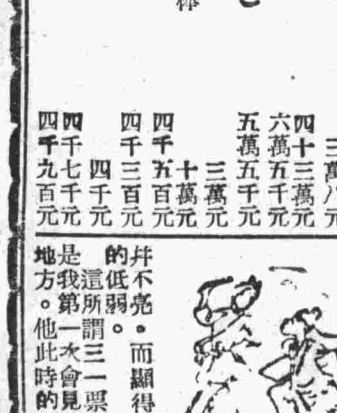 四十三萬元
六萬五千元
五萬五千元
三萬元
十萬元
四千五百元
四千三百元
四千元
四千七千元
四千九百元
幷不亮。而顯得
的低弱。
這所謂三一票
是我第一次會見
地方。他此時的